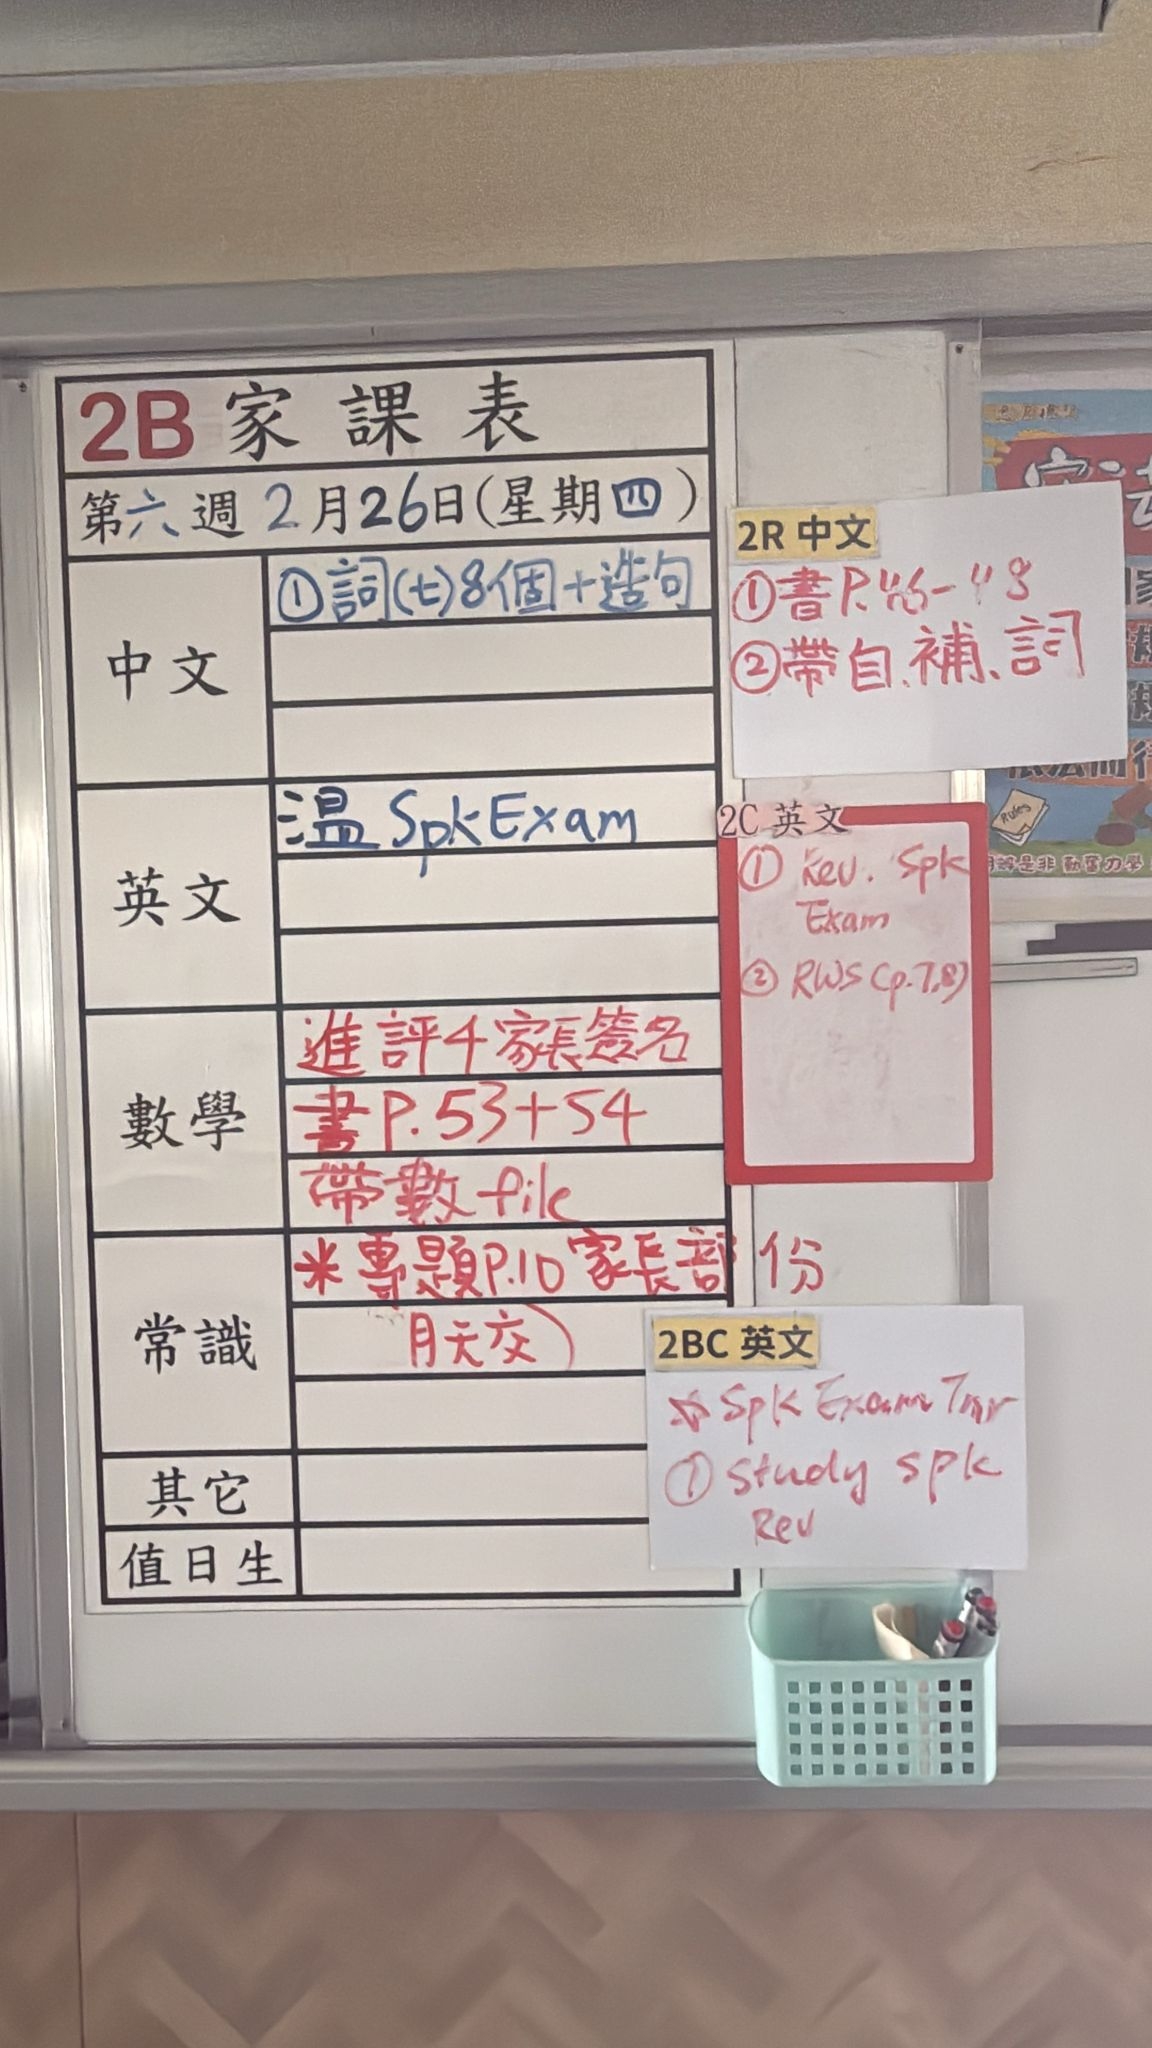 2B 家課表
第六週 2月26日(星期四)
中文
①詞(七)8個+造句
英文
溫 Spk Exam
數學
進評4 家長簽名
書 P.53+54
帶數 file
常識
* 專題P.10 家長部份
月天交)
其它
值日生
2R 中文
①書 P.46-48
②帶自、補、詞
2C 英文
① Rev. Spk
Exam
② RWS (p.7,8)
2BC 英文
☆ Spk Exam Tmr
① Study spk
Rev
Rules
明辨是非 勤奮力學